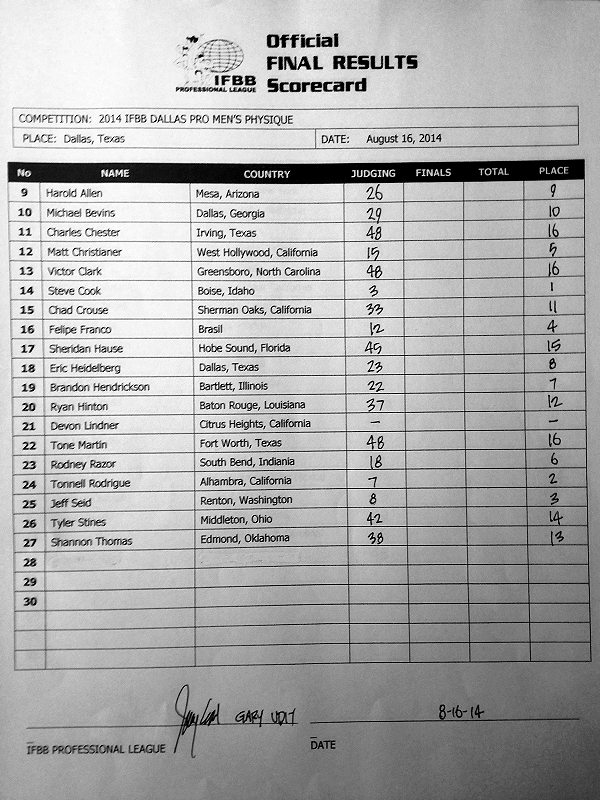 Official
FINAL RESULTS
Scorecard
IFBB
PROFESSIONAL LEAGUE
COMPETITION: 2014 IFBB DALLAS PRO MEN'S PHYSIQUE
PLACE: Dallas, Texas DATE: August 16, 2014
No NAME COUNTRY JUDGING FINALS TOTAL PLACE
9 Harold Allen Mesa, Arizona 26 9
10 Michael Bevins Dallas, Georgia 29 10
11 Charles Chester Irving, Texas 48 16
12 Matt Christianer West Hollywood, California 15 5
13 Victor Clark Greensboro, North Carolina 48 16
14 Steve Cook Boise, Idaho 3 1
15 Chad Crouse Sherman Oaks, California 33 11
16 Felipe Franco Brasil 12 4
17 Sheridan Hause Hobe Sound, Florida 45 15
18 Eric Heidelberg Dallas, Texas 23 8
19 Brandon Hendrickson Bartlett, Illinois 22 7
20 Ryan Hinton Baton Rouge, Louisiana 37 12
21 Devon Lindner Citrus Heights, California – –
22 Tone Martin Fort Worth, Texas 48 16
23 Rodney Razor South Bend, Indiania 18 6
24 Tonnell Rodrigue Alhambra, California 7 2
25 Jeff Seid Renton, Washington 8 3
26 Tyler Stines Middleton, Ohio 42 14
27 Shannon Thomas Edmond, Oklahoma 38 13
28
29
30
GARY UDIT 8-16-14
IFBB PROFESSIONAL LEAGUE DATE